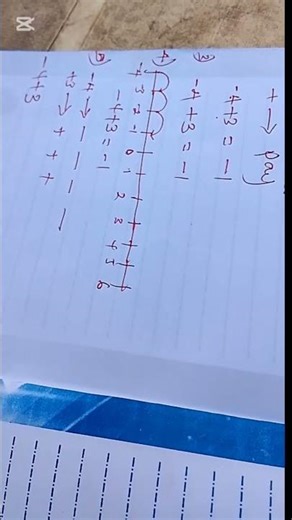 + → pay
-4+3 = -1
3)
-4+3 = -1
4)
-4 -3 -2 -1 0 1 2 3 4 5 6
-4+3 = -1
-4 → - - - -
+3 → + + +
-4+3